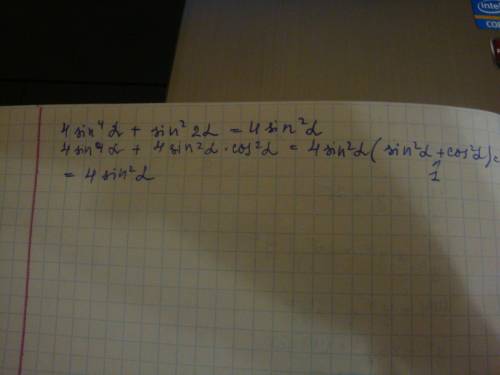 intel
CO
4 sin⁴α + sin² 2α = 4 sin²α
4 sin⁴α + 4 sin²α · cos²α = 4 sin²α (sin²α + cos²α) =
= 4 sin²α
1